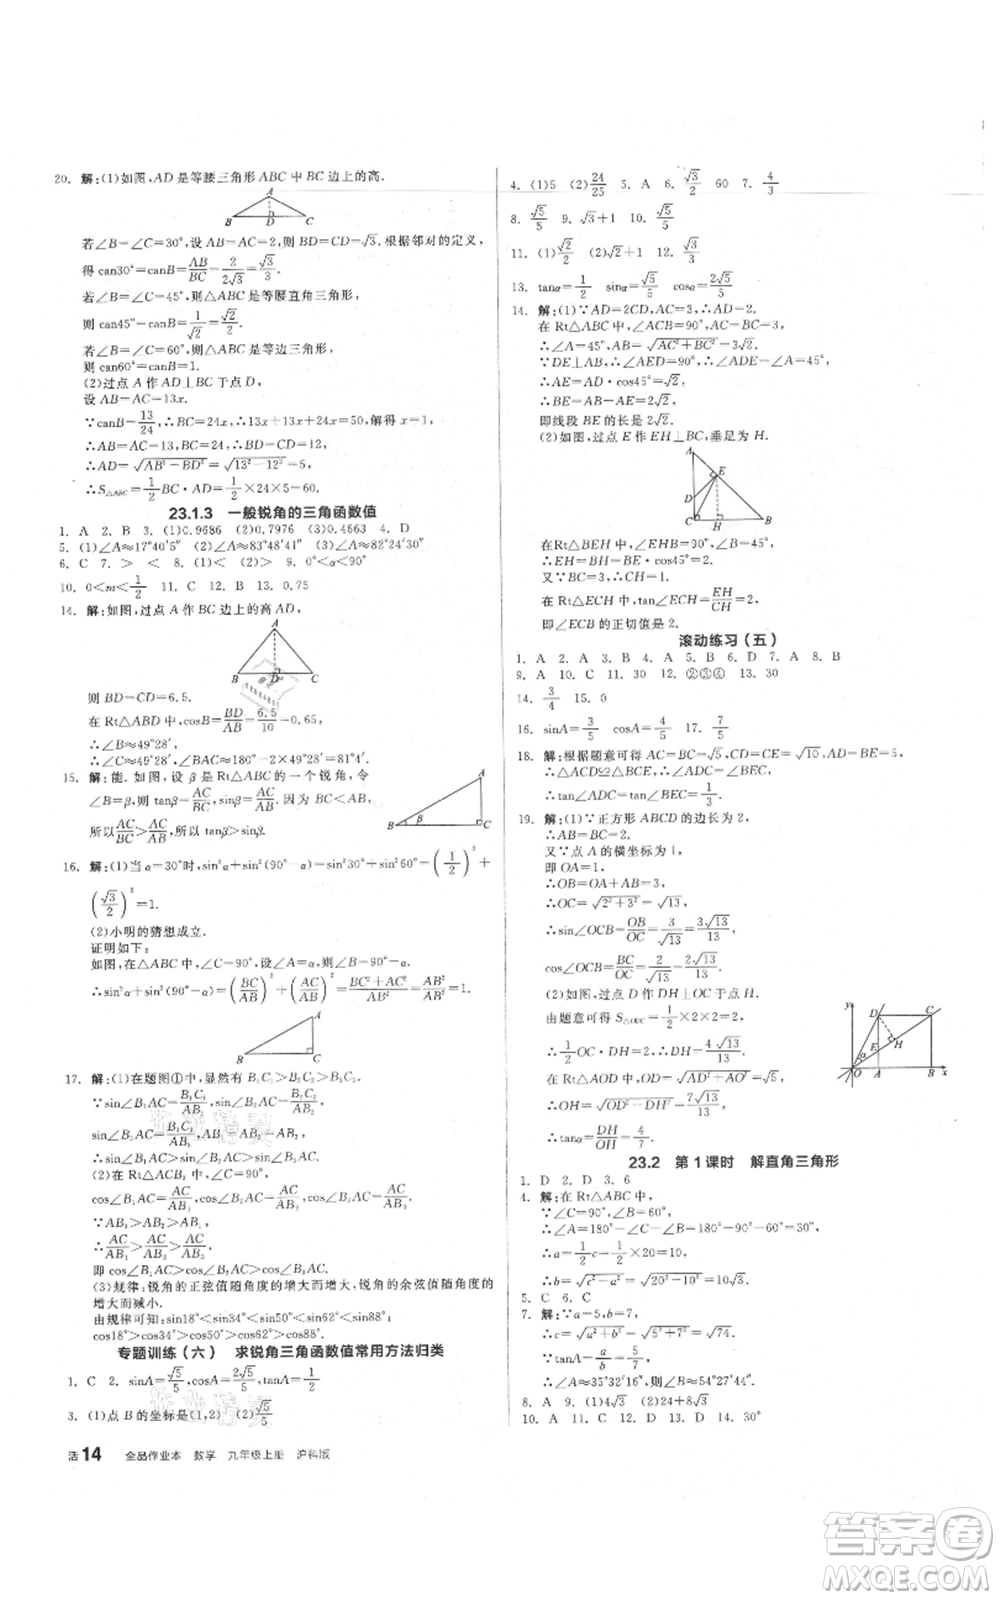 20. 解:(1)如图,AD是等腰三角形ABC中BC边上的高.
A
B D C
若∠B=∠C=30°,设AB=AC=2,则BD=CD=√3.根据邻对的定义,
得can30°=canB=AB/BC=2/(2√3)=√3/3.
若∠B=∠C=45°,则△ABC是等腰直角三角形,
则can45°=canB=1/√2=√2/2.
若∠B=∠C=60°,则△ABC是等边三角形,
则can60°=canB=1.
(2)过点A作AD⊥BC于点D,
设AB=13x.
∵canB=13/24,∴BC=24x,∴13x+13x+24x=50,解得x=1,
∴AB=AC=13,BC=24,∴BD=12,
∴AD=√(AB²-BD²)=√(13²-12²)=5,
∴S△ABC=1/2BC·AD=1/2×24×5=60.
23.1.3 一般锐角的三角函数值
1. A 2. B 3. (1)0.9686 (2)0.7976 (3)0.4663 4. D
5. (1)∠A≈17°40′5″ (2)∠A≈83°48′51″ (3)∠A≈82°24′30″
6. C 7. > < 8. (1)< (2)> 9. 0°<α<90°
10. 0<m<1/2 11. C 12. B 13. 0.75
14. 解:如图,过点A作BC边上的高AD,
A
B D C
则BD=CD=6.5.
在Rt△ABD中,cosB=BD/AB=6.5/10=0.65,
∴∠B≈49°28′,
∴∠BAC≈180°-2×49°28′=81°4′.
15. 解:能.如图,设β是Rt△ABC的一个锐角,令
∠B=β,则tanβ=AC/BC,sinβ=AC/AB.因为BC<AB,
所以AC/BC>AC/AB,所以tanβ>sinβ.
A
B β C
16. 解:(1)当α=30°时,sin²α+sin²(90°-α)=sin²30°+sin²60°=(1/2)²+
(√3/2)²=1.
(2)小明的猜想成立.
证明如下:
如图,在△ABC中,∠C=90°,设∠A=α,则∠B=90°-α,
∴sin²α+sin²(90°-α)=(BC/AB)²+(AC/AB)²=(BC²+AC²)/AB²=AB²/AB²=1.
A
B C
17. 解:(1)在题图①中,显然有B₁C₁>B₂C₂>B₃C₃.
∵sin∠B₁AC₁=B₁C₁/AB₁,sin∠B₂AC₂=B₂C₂/AB₂,
sin∠B₃AC₃=B₃C₃/AB₃,而AB₁=AB₂=AB₃,
∴sin∠B₁AC₁>sin∠B₂AC₂>sin∠B₃AC₃.
(2)在Rt△ACB₃中,∠C=90°,
cos∠B₁AC=AC/AB₁,cos∠B₂AC=AC/AB₂,cos∠B₃AC=AC/AB₃.
∵AB₃>AB₂>AB₁,
∴AC/AB₁>AC/AB₂>AC/AB₃,
即cos∠B₁AC>cos∠B₂AC>cos∠B₃AC.
(3)规律:锐角的正弦值随角度的增大而增大,锐角的余弦值随角度的
增大而减小.
由规律可知:sin18°<sin34°<sin50°<sin62°<sin88°,
cos18°>cos34°>cos50°>cos62°>cos88°.
专题训练(六) 求锐角三角函数值常用方法归类
1. C 2. sinA=√5/5,cosA=2√5/5,tanA=1/2
3. (1)点B的坐标是(1,2) (2)√5/5
活14 全品作业本 数学 九年级上册 沪科版
4. (1)5 (2)24/25 5. A 6. √3/2 60 7. 4/3
8. √5/5 9. √3+1 10. √5/5
11. (1)√2/2 (2)√2+1 12. √3/3
13. tanα=1/2 sinα=√5/5 cosα=2√5/5
14. 解:(1)∵AD=2CD,AC=3,∴AD=2.
在Rt△ABC中,∵∠ACB=90°,AC=BC=3,
∴∠A=45°,AB=√(AC²+BC²)=3√2.
∵DE⊥AB,∴∠AED=90°,
∴AE=AD·cos45°=√2,
∴BE=AB-AE=2√2,
即线段BE的长是2√2.
(2)如图,过点E作EH⊥BC,垂足为H.
A
E
D
C H B
在Rt△BEH中,∠EHB=90°,∠B=45°,
∴EH=BH=BE·cos45°=2.
又∵BC=3,∴CH=1.
在Rt△ECH中,tan∠ECH=EH/CH=2,
即∠ECB的正切值是2.
滚动练习(五)
1. A 2. A 3. A 4. C 5. B 6. D 7. A 8. B
9. A 10. C 11. 30 12. ②③④ 13. 30
14. 3/4 15. 0
16. sinA=3/5 cosA=4/5 17. 7/5
18. 解:根据题意可得AC=BC=√5,CD=CE=√10,AD=BE=5,
∴△ACD≌△BCE,∴∠ADC=∠BEC,
∴tan∠ADC=tan∠BEC=1/3.
19. 解:(1)∵正方形ABCD的边长为2,
∴AB=BC=2.
又∵点A的横坐标为1,
即OA=1,
∴OB=OA+AB=3,
∴OC=√(2²+3²)=√13,
∴sin∠OCB=OB/OC=3/√13=3√13/13,
cos∠OCB=BC/OC=2/√13=2√13/13.
(2)如图,过点D作DH⊥OC于点H,
由题意可得S△ODC=1/2×2×2=2,
∴1/2OC·DH=2,∴DH=4√13/13.
在Rt△AOD中,OD=√(AD²+AO²)=√5,
∴OH=√(OD²-DH²)=7√13/13,
∴tanα=DH/OH=4/7.
y
D C
E H
α
O A B x
23.2 第1课时 解直角三角形
1. D 2. D 3. 6
4. 解:在Rt△ABC中,
∵∠C=90°,∠B=60°,
∴∠A=180°-∠C-∠B=180°-90°-60°=30°,
∴a=1/2c=1/2×20=10,
∴b=√(c²-a²)=√(20²-10²)=10√3.
5. C 6. C
7. 解:∵a=5,b=7,
∴c=√(a²+b²)=√(5²+7²)=√74.
∵tanA=a/b=5/7,
∴∠A≈35°32′16″,∴∠B≈54°27′44″.
8. A 9. (1)4√3 (2)24+8√3
10. A 11. A 12. C 13. 4 14. 30°
答案卷
MXQE.COM